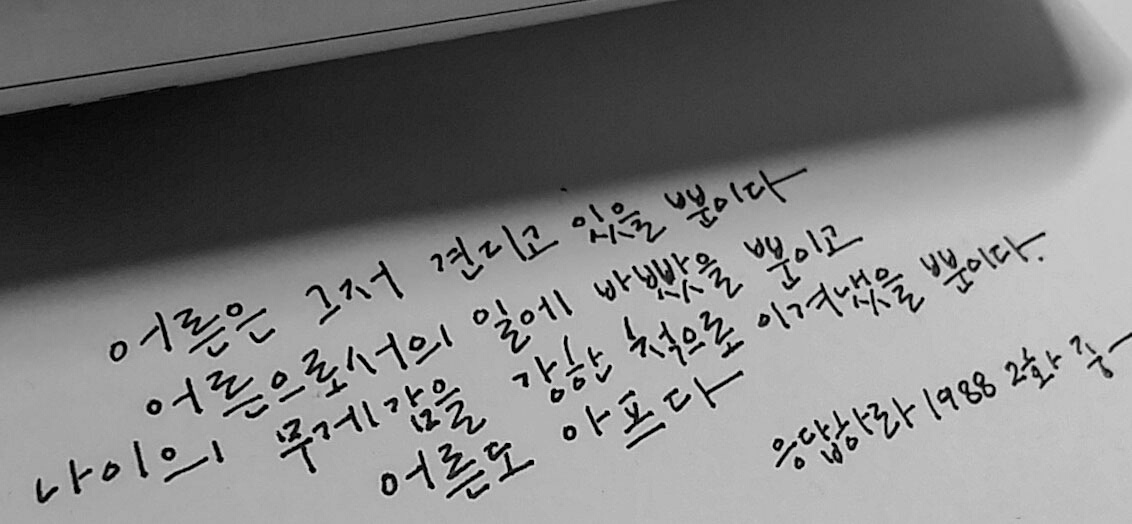 어른은 그저 견디고 있을 뿐이다
어른으로서의 일에 바빴을 뿐이고
나이의 무게감을 강한 척으로 이겨냈을 뿐이다.
어른도 아프다
응답하라 1988 2화 중